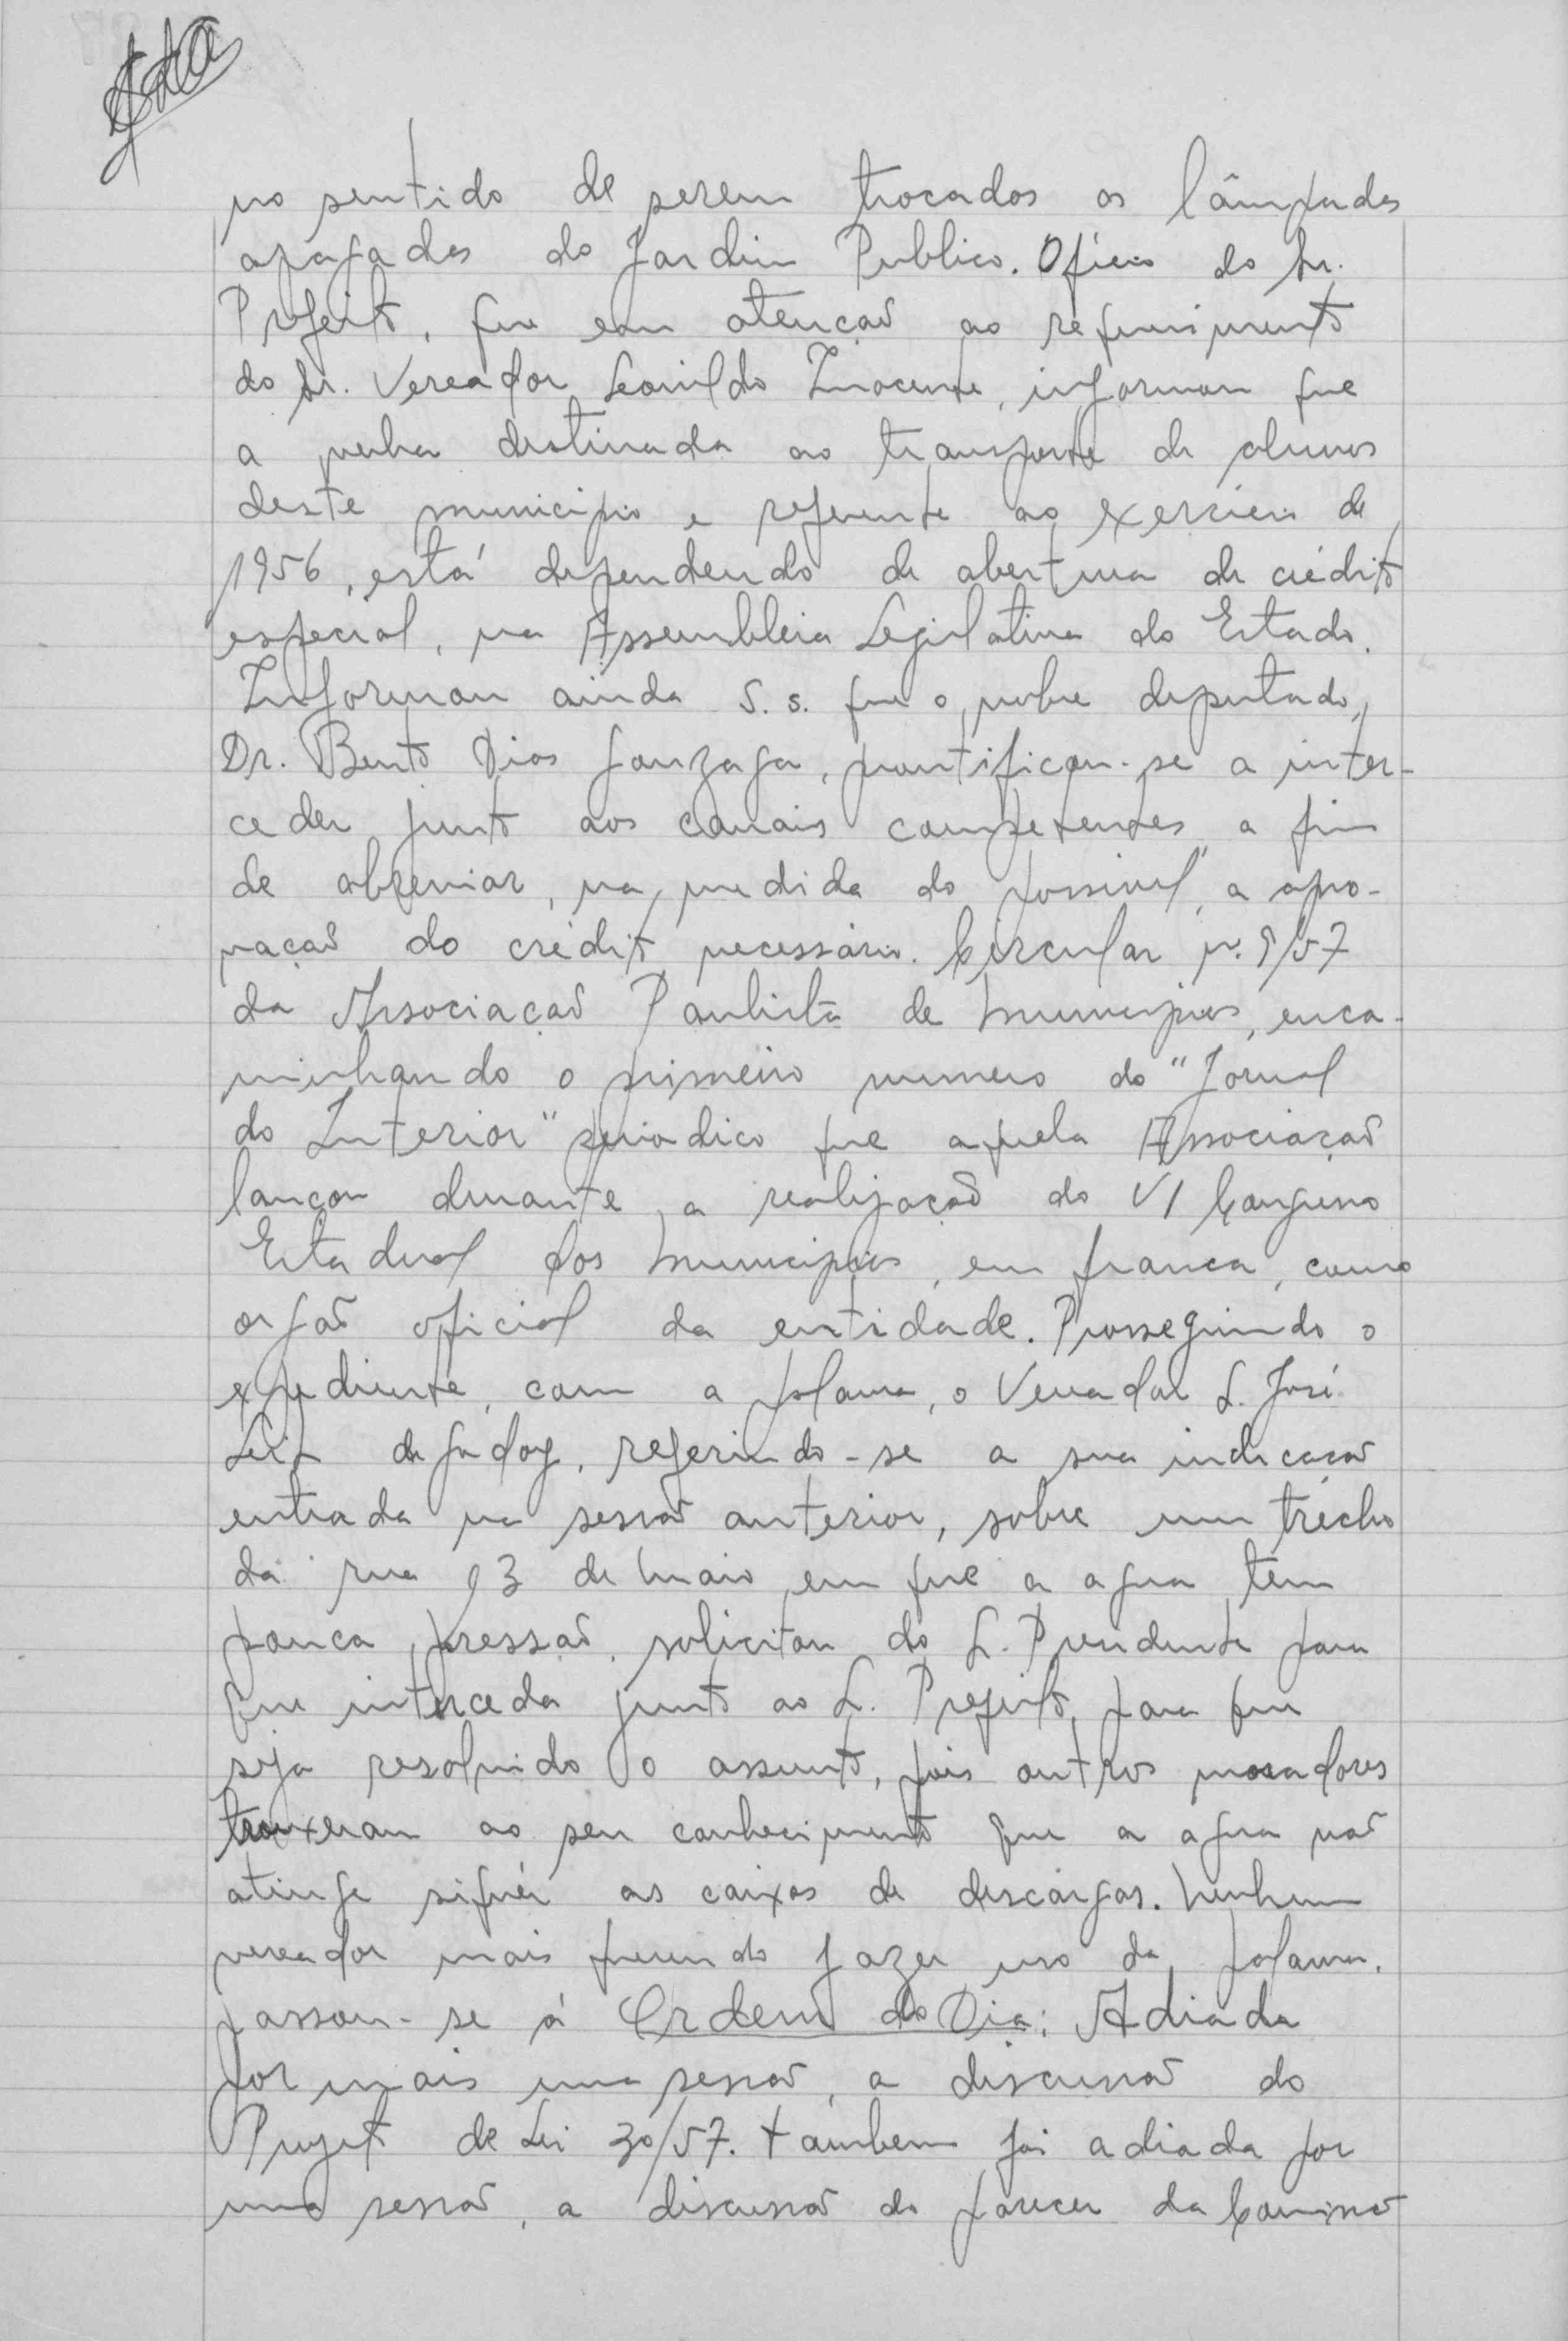 no sentido de serem trocados as lâmpadas
apagadas do Jardim Publico. Oficio do Sr.
Prefeito, que em atenção ao requerimento
do Sr. Vereador Leonildo Inocente, informou que
a verba destinada ao transporte de alunos
deste municipio e referente ao exercicio de
1956, está dependendo de abertura de crédito
especial, na Assembleia Legislativa do Estado.
Informou ainda S. s. que o nobre deputado,
Dr. Bento Dias Gonzaga, prontificou-se a inter-
ceder junto aos canais competentes, a fim
de abreviar, na medida do possivel, a apro-
vação do crédito necessário. Circular n. 9/57
da Associação Paulista de Municipios, enca-
minhando o primeiro numero do "Jornal
do Interior" periodico que aquela Associação
lançou durante a realização do VI Congresso
Estadual dos Municipios, em Franca, como
orgão oficial da entidade. Prosseguindo o
expediente, com a palavra, o Vereador S. José
de Godoy, referindo-se a sua indicação
entrada na sessão anterior, sobre um trecho
da rua 13 de Maio em que a agua tem
pouca pressão, solicitou do S. Presidente para
que interceda junto ao S. Prefeito, para que
seja resolvido o assunto, pois outros moradores
trouxeram ao seu conhecimento que a agua não
atinge siquér as caixas de descargas. Nenhum
vereador mais querendo fazer uso da palavra,
passou-se á Ordem do Dia: Adiada
por mais uma sessão, a discussão do
Projeto de Lei 30/57. Tambem foi adiada por
uma sessão, a discussão do parecer da Comissão